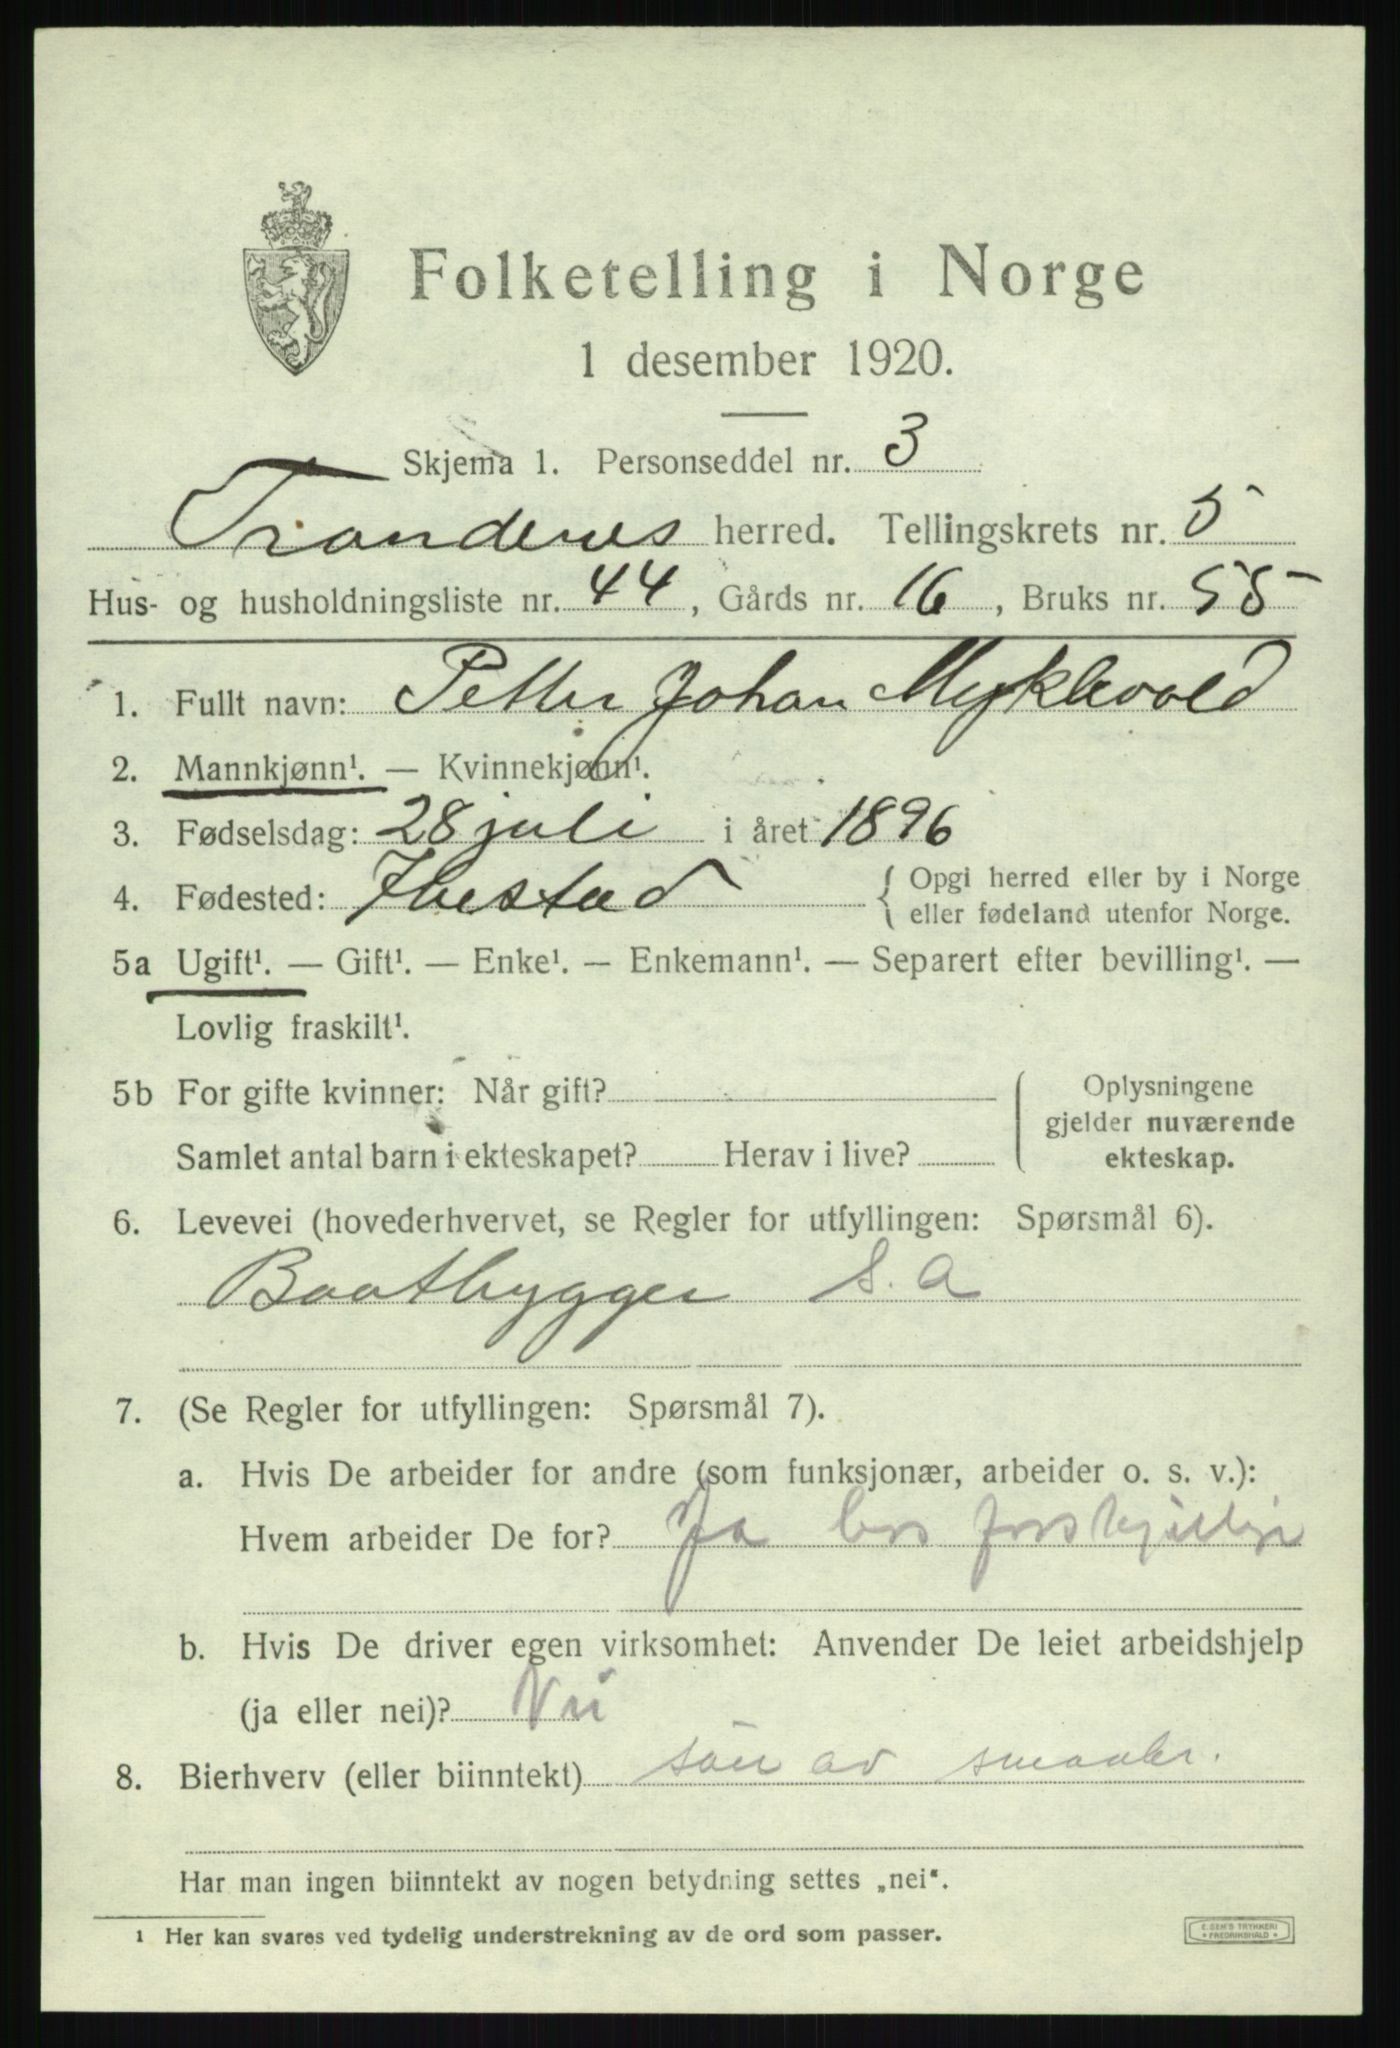 Folketelling i Norge
1 desember 1920.
Skjema 1. Personseddel nr. 3
Trondenes herred. Tellingskrets nr. 5
Hus- og husholdningsliste nr. 44, Gårds nr. 16, Bruks nr. 55
1. Fullt navn: Petter Johan Myklevold
2. Mannkjønn¹. — Kvinnekjønn¹.
3. Fødselsdag: 28 juli i året 1896
4. Fødested: Ibestad { Opgi herred eller by i Norge
eller fødeland utenfor Norge.
5a Ugift¹. — Gift¹. — Enke¹. — Enkemann¹. — Separert efter bevilling¹. —
Lovlig fraskilt¹.
5b For gifte kvinner: Når gift?
Samlet antal barn i ekteskapet? Herav i live?
Oplysningene
gjelder nuværende
ekteskap.
6. Levevei (hovederhvervet, se Regler for utfyllingen: Spørsmål 6).
Baatbygger S. A
7. (Se Regler for utfyllingen: Spørsmål 7).
a. Hvis De arbeider for andre (som funksjonær, arbeider o. s. v.):
Hvem arbeider De for? Ja hos forskjellige
b. Hvis De driver egen virksomhet: Anvender De leiet arbeidshjelp
(ja eller nei)? Nei
8. Bierhverv (eller biinntekt) søn av smaabr.
Har man ingen biinntekt av nogen betydning settes „nei“.
¹ Her kan svares ved tydelig understrekning av de ord som passer.
E. SEM'S TRYKKERI
FREDRIKSHALD